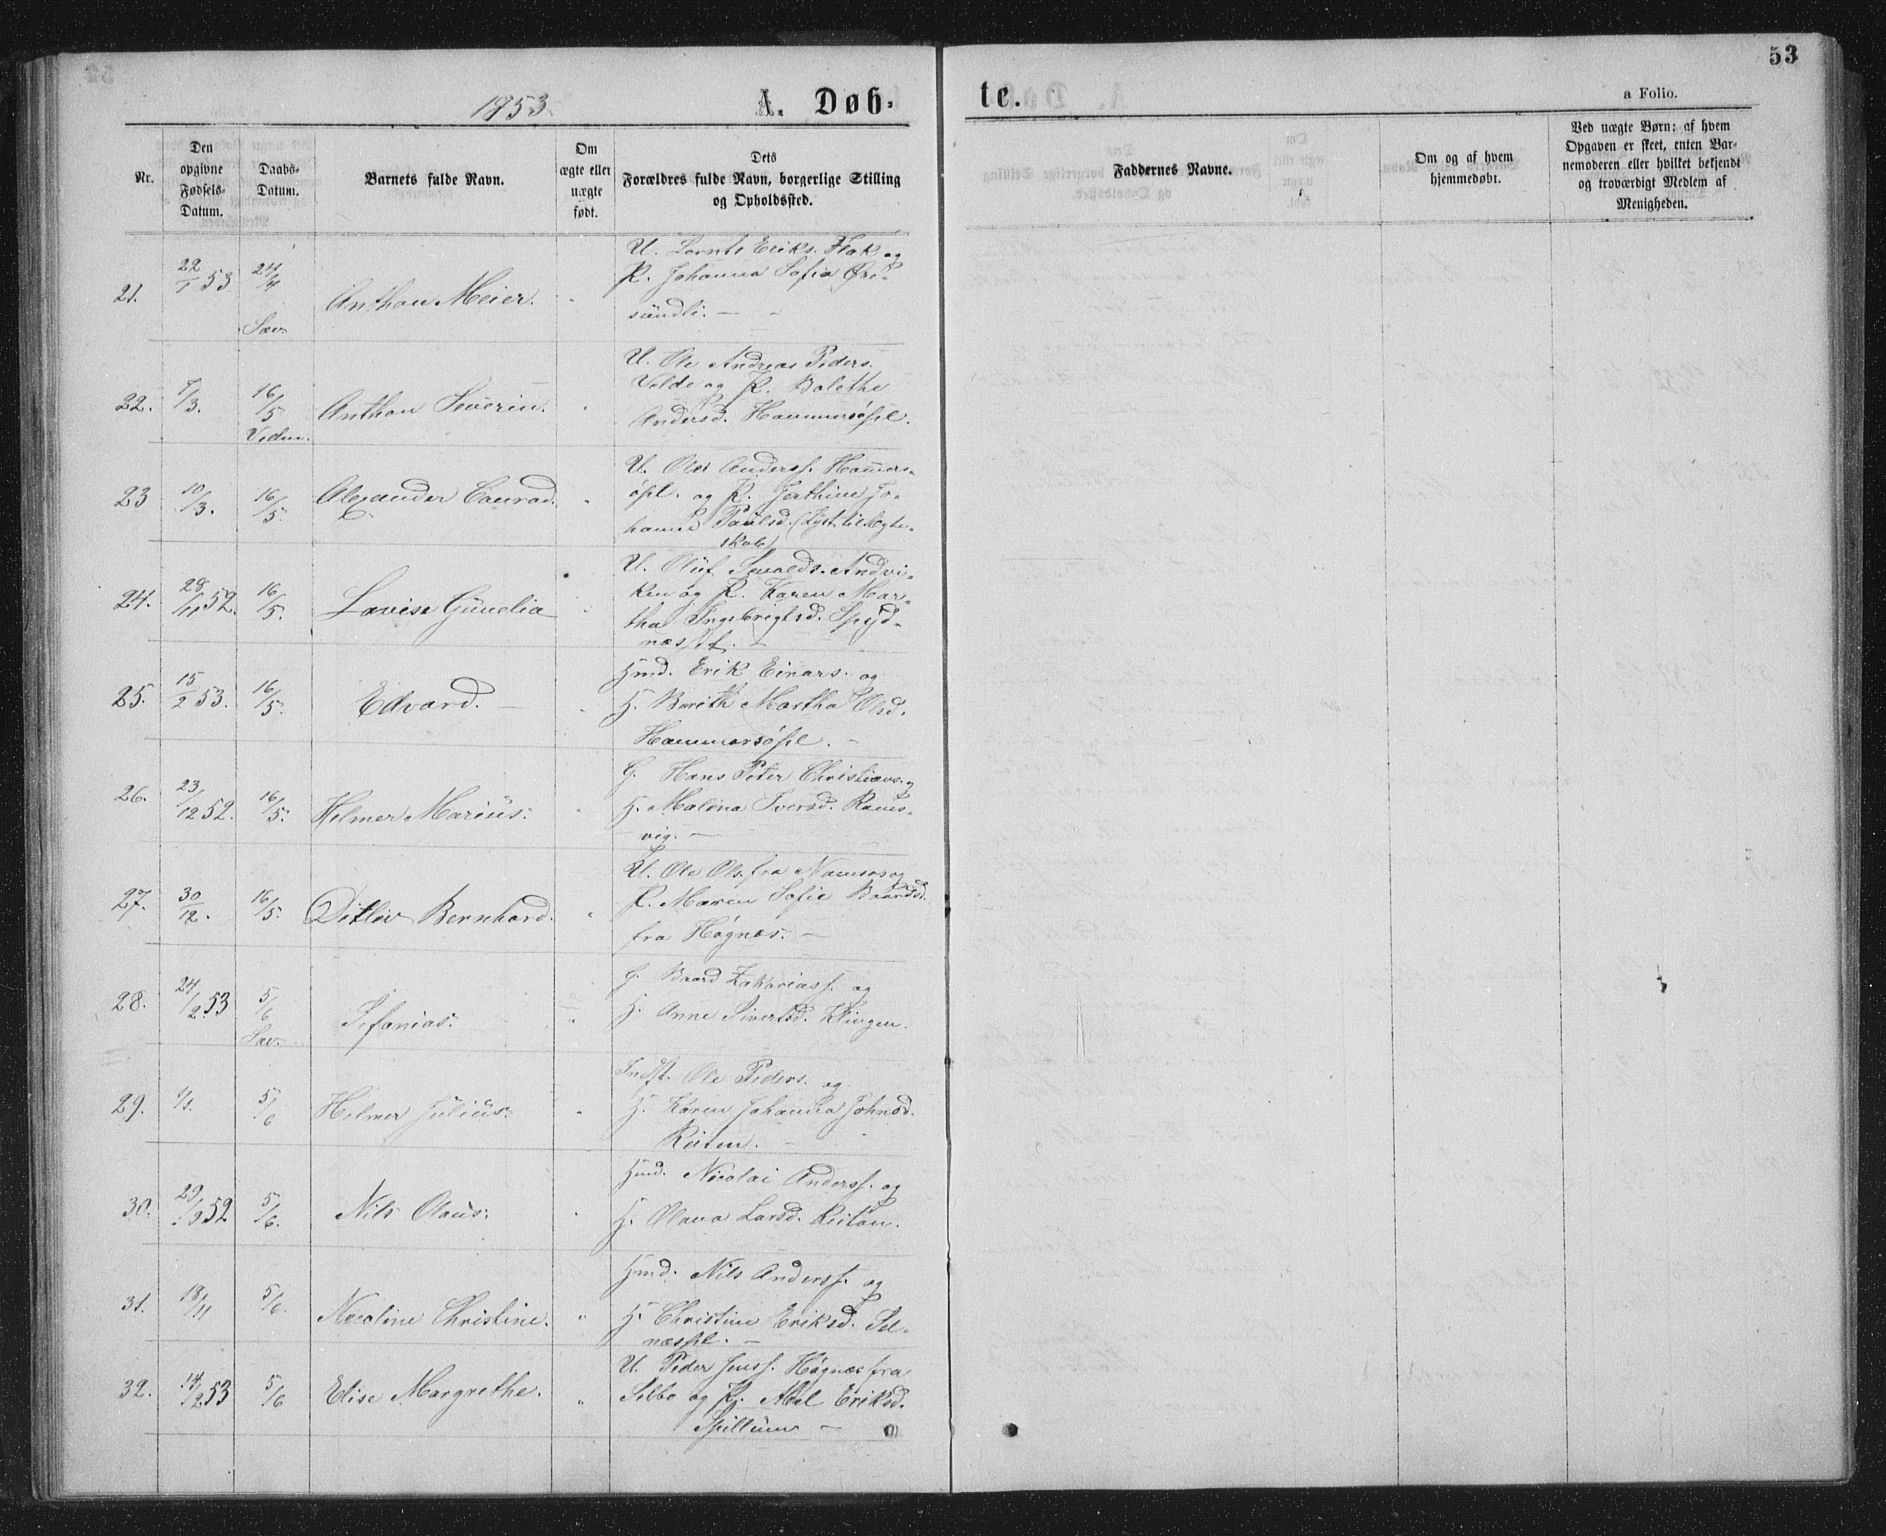 53
1853.
A. Døb-
te.
a Folio.
Nr.
Den
opgivne
Fødsels-
Datum.
Daabs-
Datum.
Barnets fulde Navn.
Om
ægte eller
uægte
født.
Dets
Forældres fulde Navn, borgerlige Stilling
og Opholdssted.
Faddernes Navne.
Om og af hvem
hjemmedøbt.
Ved uægte Børn: af hvem
Opgaven er skeet, enten Bar-
nemoderen eller hvilket bekjendt
og troværdigt Medlem af
Menigheden.
21.
22/1 53
24/4
Sæv.
Anthon Meier.
U. Lornts Eriks. Flak og
P. Johanna Sofia
sundli. —
22.
7/3.
16/5
Vedm.
Anthon Severin.
U. Ole Andreas Peders.
Velde og P. Bolethe
Andersd. Hammersøpl.
23
10/3.
16/5.
Alexander Conrad.
U. Ole Anderss. Hammers-
øpl. og P. Jo-
hanna Paulsd. (Lyst til Ægte-
skab)
24.
28/11 52.
16/5.
Lovise Gunelia
U. Oluf Andvi-
ken og P. Karen Mar-
tha Ingebrigtsd. Spyd-
næsset. —
25.
15/2 53.
16/5.
Edvard. —
Hmd. Erik Einars. og
H. Bereth Martha Olsd.
Hammersøpl. —
26.
23/12 52.
16/5.
Helmer Marius.
G. Hans Peter Christians. og
H. Malena Iversd. Rams-
vig. —
27.
30/12.
16/5.
Ditlev Bernhard.
U. Ole Ols. fra Namsos og
P. Maren Sofie Baardsd.
fra Høgnes. —
28.
24/2 53
5/6
Sæv.
Sefanias.
G. Baard Zakariass. og
H. Anne Sivertsd. Klingen.
29.
1/1.
5/6
Helmer Julius.
Indst. Ole Peders. og
H. Karen Johanna Johnsd.
Reiten. —
30.
52
5/6.
Nils Olaus.
Hmd. Nicolai Anderss. og
H. Olava Larsd. Reitan.
31.
18/11
5/6.
Nicoline Christine.
Hmd. Nils Anderss. og
H. Christine Eriksd. Sel-
næspl. —
32.
14/2 53
5/6
Elise Margrethe.
U. Peder Jenss. Høgnes fra
Selbo og P. Abel Eriksd.
Spillum —